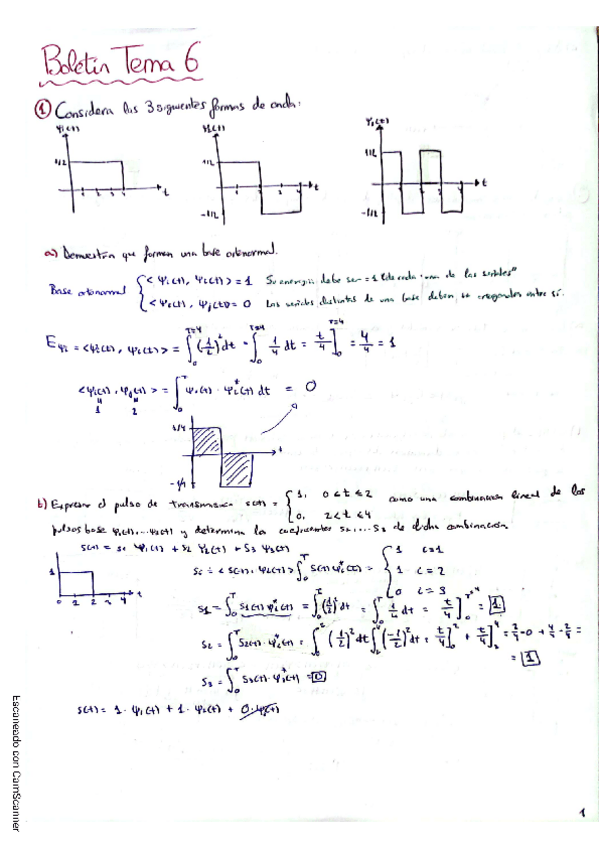 Boletín Tema 6
① Considera las 3 siguientes formas de onda:
ψ₁(t) ψ₂(t) ψ₃(t)
1/2 1/2 1/2
1 2 3 4 t t t
-1/2 -1/2
a) Demuestra que forman una base ortonormal.
Base ortonormal { <ψᵢ(t), ψᵢ(t)> = 1 Su energía debe ser = 1 de cada una de las señales
<ψᵢ(t), ψⱼ(t)> = 0 Las señales distintas de una base deben ser ortogonales entre sí.
E_ψᵢ = <ψᵢ(t), ψᵢ(t)> = ∫₀^{T=4} (1/2)² dt = ∫₀^{T=4} 1/4 dt = t/4 ]₀^{T=4} = 4/4 = 1
<ψᵢ(t), ψⱼ(t)> = ∫₀^T ψ₁(t) · ψ₂*(t) dt = 0
1 2
1/4
t
-1/4
b) Expresar el pulso de transmisión s(t) = { 1, 0<t≤2 como una combinación lineal de los
0, 2<t≤4
pulsos base ψ₁(t),...ψ₃(t) y determina los coeficientes s₁,...s₃ de dicha combinación.
s(t) = s₁ ψ₁(t) + s₂ ψ₂(t) + s₃ ψ₃(t)
1
0 1 2 3 4 t
sᵢ = <s(t), ψᵢ(t)> ∫₀^T s(t) ψᵢ*(t) = { 1 i=1
1 i=2
0 i=3
s₁ = ∫₀^T s₁(t) ψ₁*(t) = ∫₀^T (1/2)² dt = ∫₀^T 1/4 dt = t/4 ]₀^4 = 1
s₂ = ∫₀^T s₂(t) · ψ₂*(t) = ∫₀^2 (1/2)² dt ∫₂^4 (-1/2)² dt = t/4 ]₀^2 + t/4 ]₂^4 = 2/4 - 0 + 4/4 - 2/4 =
= 1
s₃ = ∫₀^T s₃(t) · ψ₃*(t) = 0
s(t) = 1 · ψ₁(t) + 1 · ψ₂(t) + 0 · ψ₃(t)
1
Escaneado con CamScanner